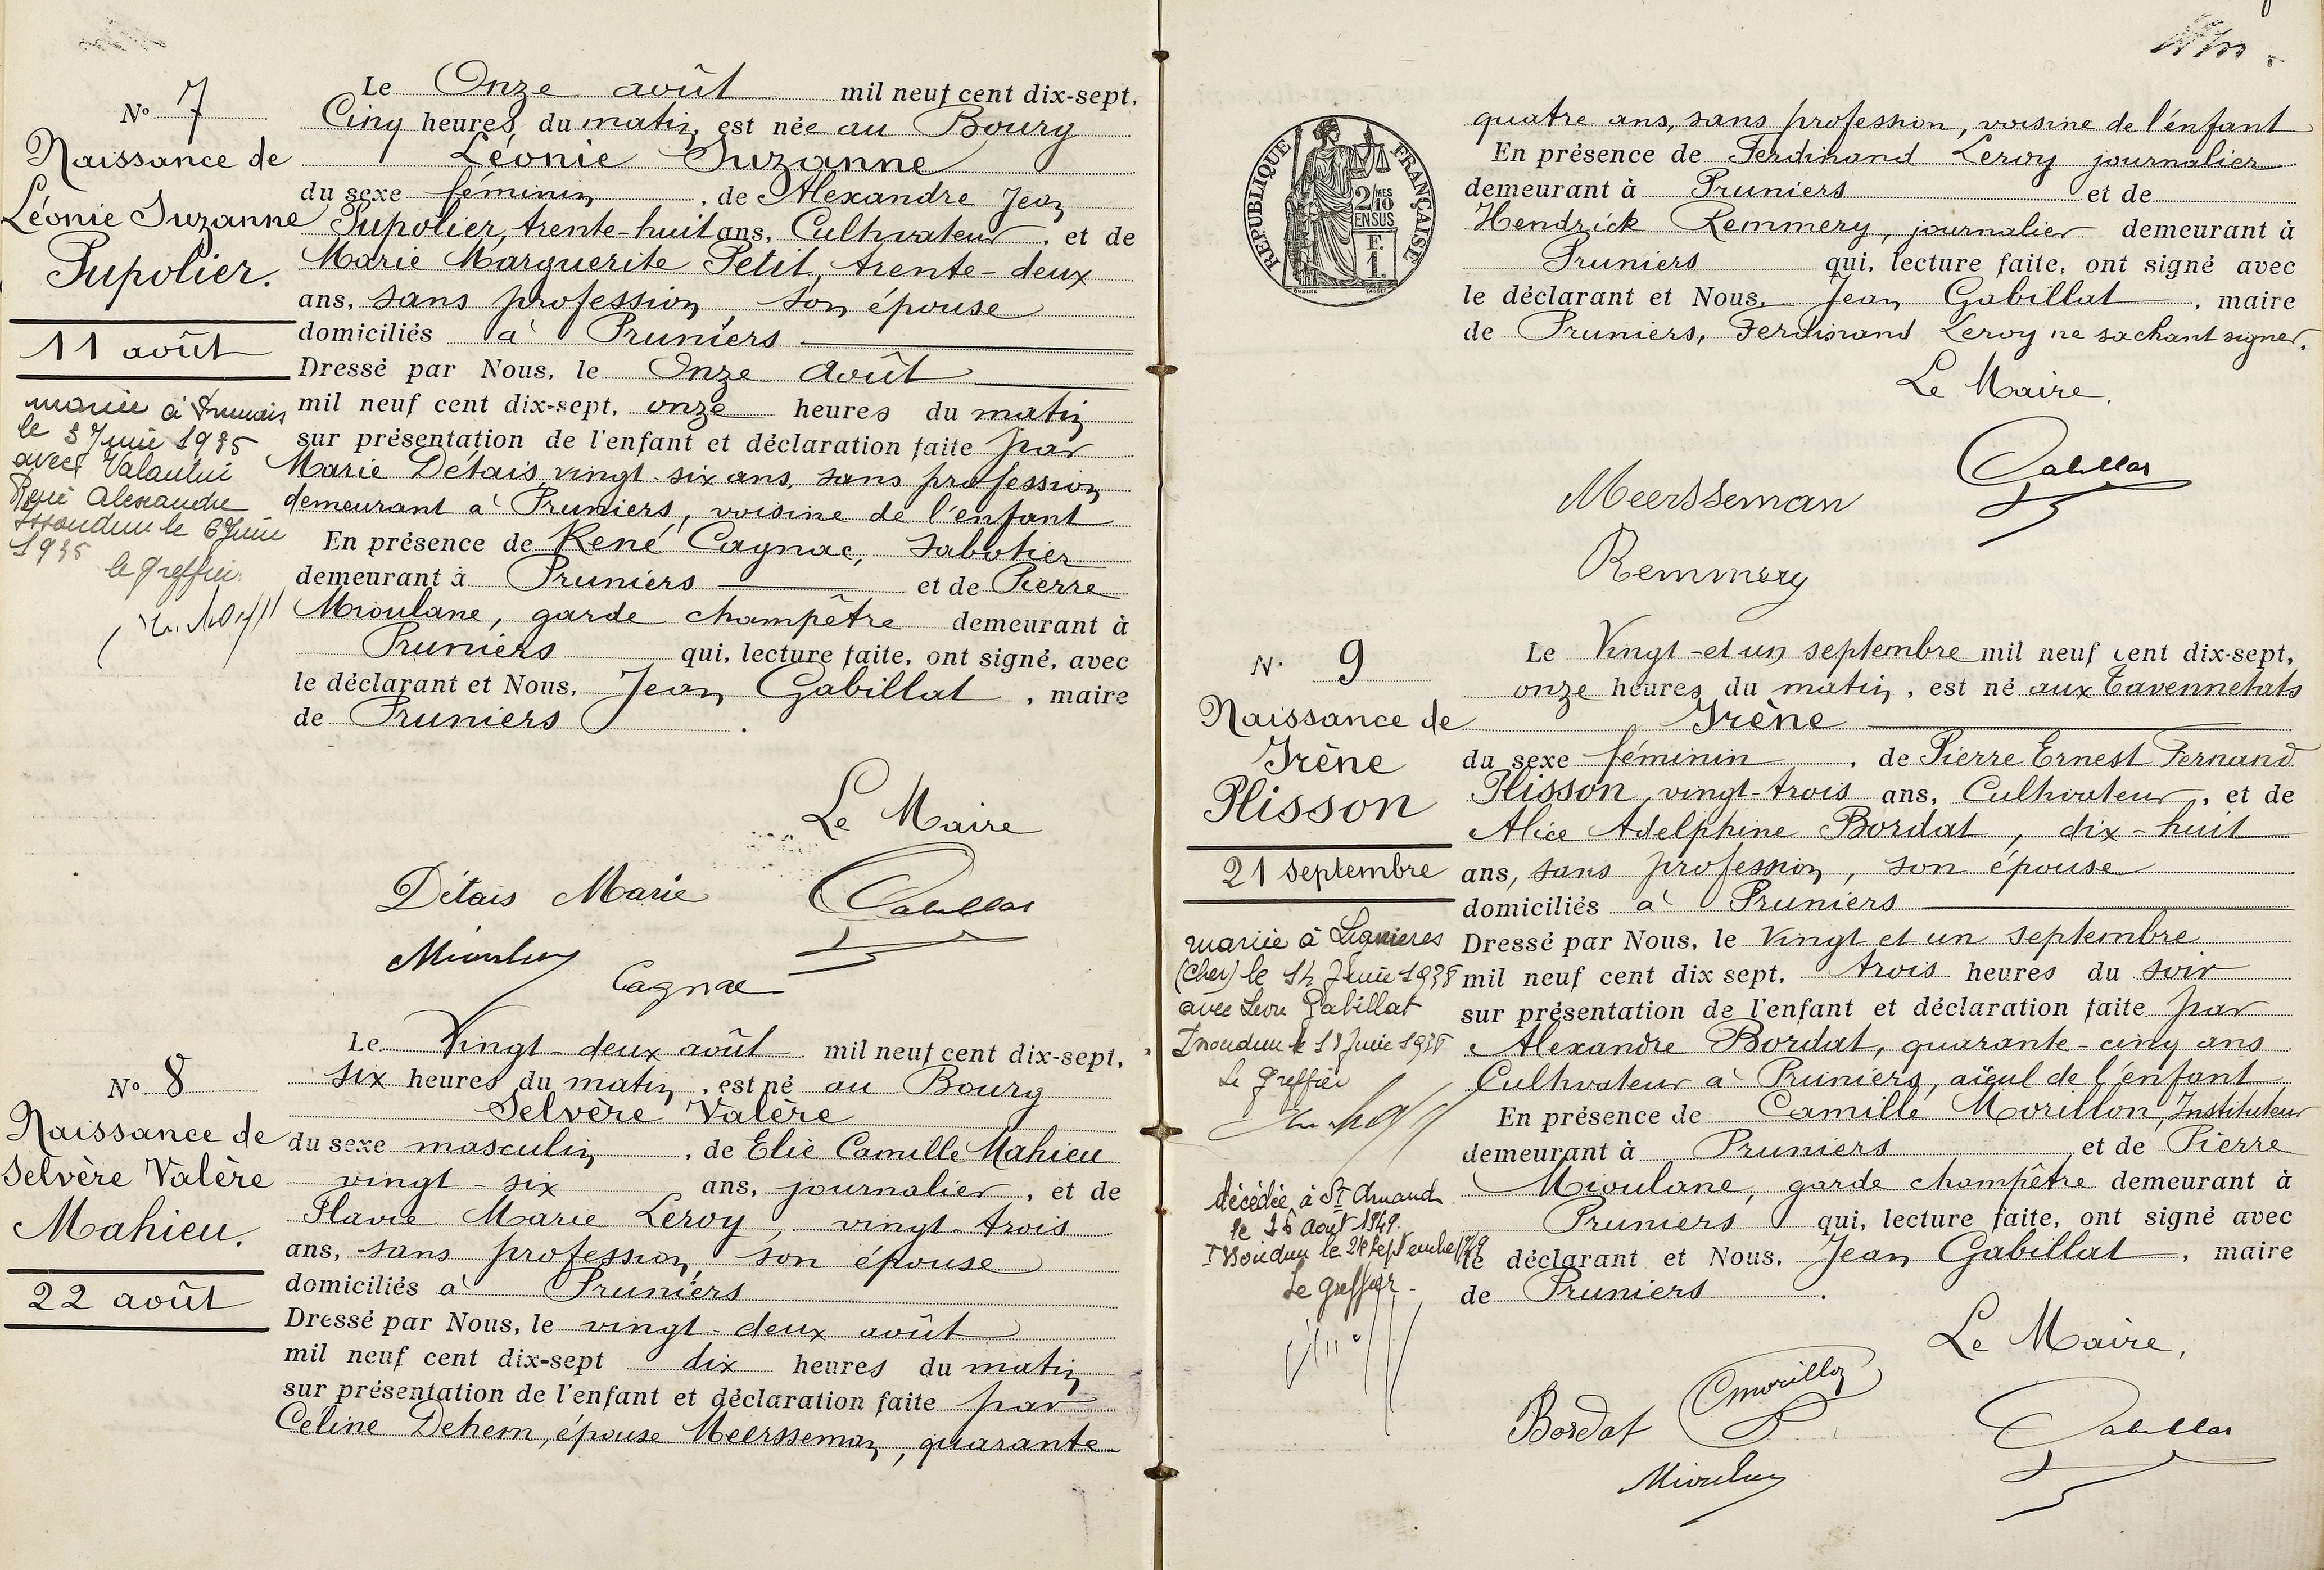 N° 7
Naissance de
Léonie Suzanne
Pupolier.
11 août
mariée à Pruniers
le 3 Juin 1935
avec Valentin
René Alexandre
Issoudun le 6 Juin
1935
le greffier
Le Onze août mil neuf cent dix-sept,
Cinq heures du matin, est née au Bourg
Léonie Suzanne
du sexe féminin, de Alexandre Jean
Pupolier, trente-huit ans, Cultivateur, et de
Marie Marguerite Petit, trente-deux
ans, sans profession, son épouse
domiciliés à Pruniers
Dressé par Nous, le Onze Août
mil neuf cent dix-sept, onze heures du matin
sur présentation de l'enfant et déclaration faite par
Marie Détais, vingt-six ans, sans profession
demeurant à Pruniers, voisine de l'enfant
En présence de René Cagnac, sabotier
demeurant à Pruniers et de Pierre
Mioulane, garde champêtre demeurant à
Pruniers qui, lecture faite, ont signé, avec
le déclarant et Nous, Jean Gabillat, maire
de Pruniers.
Le Maire
Détais Marie
Gabillat
Cagnac
N° 8
Naissance de
Selvère Valère
Mahieu.
22 août
Le Vingt-deux août mil neuf cent dix-sept,
six heures du matin, est né au Bourg
Selvère Valère
du sexe masculin, de Elie Camille Mahieu
vingt-six ans, journalier, et de
Flavie Marie Leroy, vingt-trois
ans, sans profession, son épouse
domiciliés à Pruniers
Dressé par Nous, le vingt-deux août
mil neuf cent dix-sept dix heures du matin
sur présentation de l'enfant et déclaration faite par
Celine Dehem, épouse Meersseman, quarante
RÉPUBLIQUE FRANÇAISE
2/10MES
EN SUS
F.
1.
quatre ans, sans profession, voisine de l'enfant
En présence de Ferdinand Leroy journalier
demeurant à Pruniers et de
Hendrick Remmery, journalier demeurant à
Pruniers qui, lecture faite, ont signé avec
le déclarant et Nous, Jean Gabillat, maire
de Pruniers, Ferdinand Leroy ne sachant signer.
Le Maire,
Gabillat
Meersseman
Remmery
N° 9
Naissance de
Irène
Plisson
21 septembre
mariée à Lignières
(Cher) le 14 Juin 1938
avec Léon Gabillat
Issoudun le 18 Juin 1938
Le greffier
décédée à St Amand
le 16 Août 1949.
Issoudun le 24 Septembre 1949
Le greffier
Le Vingt-et un septembre mil neuf cent dix-sept,
onze heures du matin, est né aux Tavennetats
Irène
du sexe féminin, de Pierre Ernest Fernand
Plisson, vingt-trois ans, Cultivateur, et de
Alice Adelphine Bordat, dix-huit
ans, sans profession, son épouse
domiciliés à Pruniers
Dressé par Nous, le Vingt et un septembre
mil neuf cent dix sept, trois heures du soir
sur présentation de l'enfant et déclaration faite par
Alexandre Bordat, quarante-cinq ans
Cultivateur à Pruniers, aïeul de l'enfant
En présence de Camille Morillon, Instituteur
demeurant à Pruniers et de Pierre
Mioulane, garde champêtre demeurant à
Pruniers qui, lecture faite, ont signé avec
le déclarant et Nous, Jean Gabillat, maire
de Pruniers.
Le Maire,
CMorillon
Bordat
Gabillat